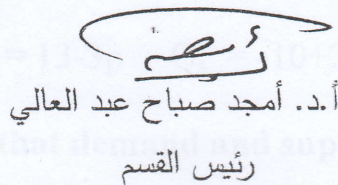 أ.د. أمجد صباح عبد العالي
رئيس القسم